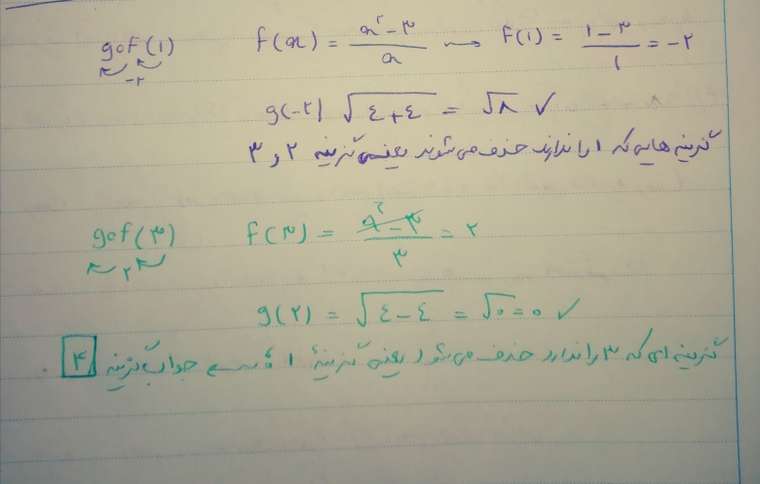 gof(1) f(x) = x² - ۳ / x → f(1) = ۱ - ۳ / ۱ = -۲
-۲
g(-۲) √٤+٤ = √۸ ✓
گزینه هایی که ۱ را ندارند حذف می شوند یعنی گزینه ۲ و ۳
gof(۳) f(۳) = ۹ - ۳ / ۳ = ۲
۲
g(۲) = √٤-٤ = √۰ = ۰ ✓
گزینه ای که ۳ را ندارد حذف می شود یعنی گزینهٔ ۱ جواب گزینه ۴